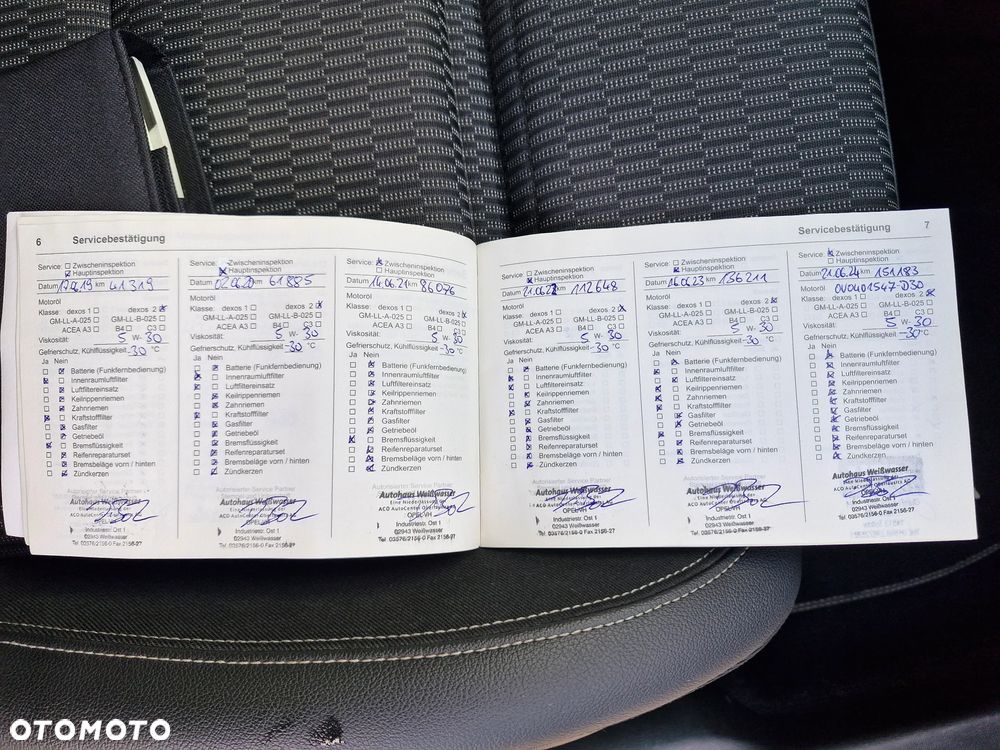 6 Servicebestätigung
Service: Zwischeninspektion
Hauptinspektion
Datum 17.06.19 km 41319
Motoröl
Klasse: dexos 1 dexos 2
GM-LL-A-025 GM-LL-B-025
ACEA A3 B4 C3
Viskosität: 5 W- 30
Gefrierschutz, Kühlflüssigkeit -30 °C
Ja Nein
Batterie (Funkfernbedienung)
Innenraumluftfilter
Luftfiltereinsatz
Keilrippenriemen
Zahnriemen
Kraftstofffilter
Gasfilter
Getriebeöl
Bremsflüssigkeit
Reifenreparaturset
Bremsbeläge vorn / hinten
Zündkerzen
Autorisierter Service Partner
Autohaus Weißwasser
Eine Niederlassung der
ACO AutoCenter Oberlausitz AG
OPEL/VH
Industriestr. Ost 1
02943 Weißwasser
Tel. 03576/2156-0 Fax 2156-27
Service: Zwischeninspektion
Hauptinspektion
Datum 02.06.20 km 61885
Motoröl
Klasse: dexos 1 dexos 2
GM-LL-A-025 GM-LL-B-025
ACEA A3 B4 C3
Viskosität: 5 W- 30
Gefrierschutz, Kühlflüssigkeit -30 °C
Ja Nein
Batterie (Funkfernbedienung)
Innenraumluftfilter
Luftfiltereinsatz
Keilrippenriemen
Zahnriemen
Kraftstofffilter
Gasfilter
Getriebeöl
Bremsflüssigkeit
Reifenreparaturset
Bremsbeläge vorn / hinten
Zündkerzen
Autorisierter Service Partner
Autohaus Weißwasser
Eine Niederlassung der
ACO AutoCenter Oberlausitz AG
OPEL/VH
Industriestr. Ost 1
02943 Weißwasser
Tel. 03576/2156-0 Fax 2156-27
Service: Zwischeninspektion
Hauptinspektion
Datum 14.06.21 km 86076
Motoröl
Klasse: dexos 1 dexos 2
GM-LL-A-025 GM-LL-B-025
ACEA A3 B4 C3
Viskosität: 5 W- 30
Gefrierschutz, Kühlflüssigkeit -30 °C
Ja Nein
Batterie (Funkfernbedienung)
Innenraumluftfilter
Luftfiltereinsatz
Keilrippenriemen
Zahnriemen
Kraftstofffilter
Gasfilter
Getriebeöl
Bremsflüssigkeit
Reifenreparaturset
Bremsbeläge vorn / hinten
Zündkerzen
Autohaus Weißwasser
Eine Niederlassung der
ACO AutoCenter Oberlausitz AG
OPEL/VH
Industriestr. Ost 1
02943 Weißwasser
Tel. 03576/2156-0 Fax 2156-27
Servicebestätigung 7
Service: Zwischeninspektion
Hauptinspektion
Datum 21.06.22 km 112648
Motoröl
Klasse: dexos 1 dexos 2
GM-LL-A-025 GM-LL-B-025
ACEA A3 B4 C3
Viskosität: 5 W- 30
Gefrierschutz, Kühlflüssigkeit -30 °C
Ja Nein
Batterie (Funkfernbedienung)
Innenraumluftfilter
Luftfiltereinsatz
Keilrippenriemen
Zahnriemen
Kraftstofffilter
Gasfilter
Getriebeöl
Bremsflüssigkeit
Reifenreparaturset
Bremsbeläge vorn / hinten
Zündkerzen
Autorisierter Service Partner
Autohaus Weißwasser
Eine Niederlassung der
ACO AutoCenter Oberlausitz AG
OPEL/VH
Industriestr. Ost 1
02943 Weißwasser
Tel. 03576/2156-0 Fax 2156-27
Service: Zwischeninspektion
Hauptinspektion
Datum 16.06.23 km 136211
Motoröl
Klasse: dexos 1 dexos 2
GM-LL-A-025 GM-LL-B-025
ACEA A3 B4 C3
Viskosität: 5 W- 30
Gefrierschutz, Kühlflüssigkeit -30 °C
Ja Nein
Batterie (Funkfernbedienung)
Innenraumluftfilter
Luftfiltereinsatz
Keilrippenriemen
Zahnriemen
Kraftstofffilter
Gasfilter
Getriebeöl
Bremsflüssigkeit
Reifenreparaturset
Bremsbeläge vorn / hinten
Zündkerzen
Autohaus Weißwasser
Eine Niederlassung der
ACO AutoCenter Oberlausitz AG
OPEL/VH
Industriestr. Ost 1
02943 Weißwasser
Tel. 03576/2156-0 Fax 2156-27
Service: Zwischeninspektion
Hauptinspektion
Datum 21.06.24 km 151183
Motoröl 0V0401547-D30
Klasse: dexos 1 dexos 2
GM-LL-A-025 GM-LL-B-025
ACEA A3 B4 C3
Viskosität: 5 W- 30
Gefrierschutz, Kühlflüssigkeit -30 °C
Ja Nein
Batterie (Funkfernbedienung)
Innenraumluftfilter
Luftfiltereinsatz
Keilrippenriemen
Zahnriemen
Kraftstofffilter
Gasfilter
Getriebeöl
Bremsflüssigkeit
Reifenreparaturset
Bremsbeläge vorn / hinten
Zündkerzen
Autohaus Weißwasser
Eine Niederlassung der
ACO AutoCenter Oberlausitz AG
Industriestr. Ost 1
02943 Weißwasser
Tel. 03576/2156-0 Fax 2156-27
OTOMOTO